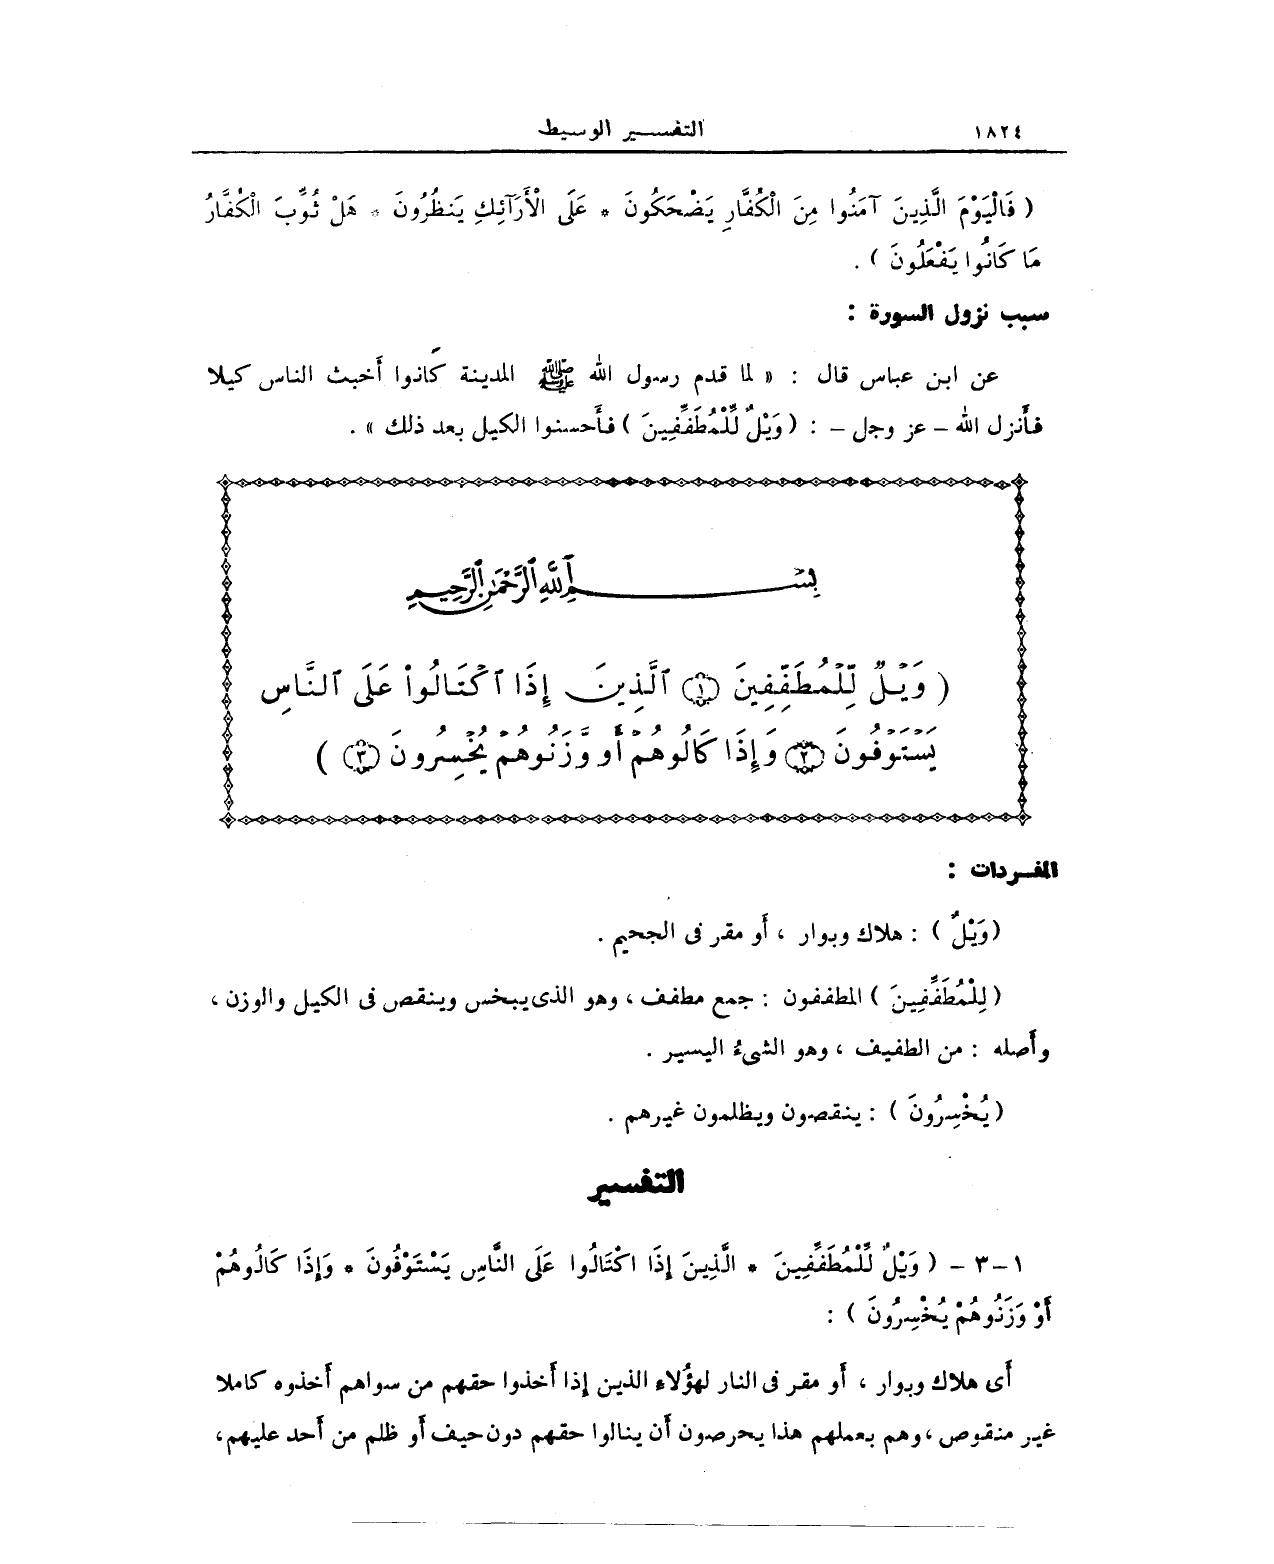 ١٨٢٤ التفسير الوسيط
( فَالْيَوْمَ الَّذِينَ آمَنُوا مِنَ الْكُفَّارِ يَضْحَكُونَ * عَلَى الْأَرَآئِكِ يَنظُرُونَ * هَلْ ثُوِّبَ الْكُفَّارُ
مَا كَانُوا يَفْعَلُونَ ) .
سبب نزول السورة :
عن ابن عباس قال : « لما قدم رسول الله ﷺ المدينة كانوا أخبث الناس كيلا
فأنزل الله – عز وجل – : ( وَيْلٌ لِّلْمُطَفِّفِينَ ) فأحسنوا الكيل بعد ذلك » .
بِسْمِ ٱللَّهِ ٱلرَّحْمَٰنِ ٱلرَّحِيمِ
( وَيْلٌ لِّلْمُطَفِّفِينَ ١ ٱلَّذِينَ إِذَا ٱكْتَالُوا۟ عَلَى ٱلنَّاسِ
يَسْتَوْفُونَ ٢ وَإِذَا كَالُوهُمْ أَو وَّزَنُوهُمْ يُخْسِرُونَ ٣ )
المفردات :
( وَيْلٌ ) : هلاك وبوار ، أو مقر فى الجحيم .
( لِلْمُطَفِّفِينَ ) المطففون : جمع مطفف ، وهو الذى يبخس وينقص فى الكيل والوزن ،
وأصله : من الطفيف ، وهو الشىءُ اليسير .
( يُخْسِرُونَ ) : ينقصون ويظلمون غيرهم .
التفسير
١-٣ – ( وَيْلٌ لِّلْمُطَفِّفِينَ * الَّذِينَ إِذَا اكْتَالُوا عَلَى النَّاسِ يَسْتَوْفُونَ * وَإِذَا كَالُوهُمْ
أَوْ وَزَنُوهُمْ يُخْسِرُونَ ) :
أى هلاك وبوار ، أو مقر فى النار لهؤلاء الذين إذا أخذوا حقهم من سواهم أخذوه كاملا
غير منقوص ، وهم بعملهم هذا يحرصون أن ينالوا حقهم دون حيف أو ظلم من أحد عليهم،